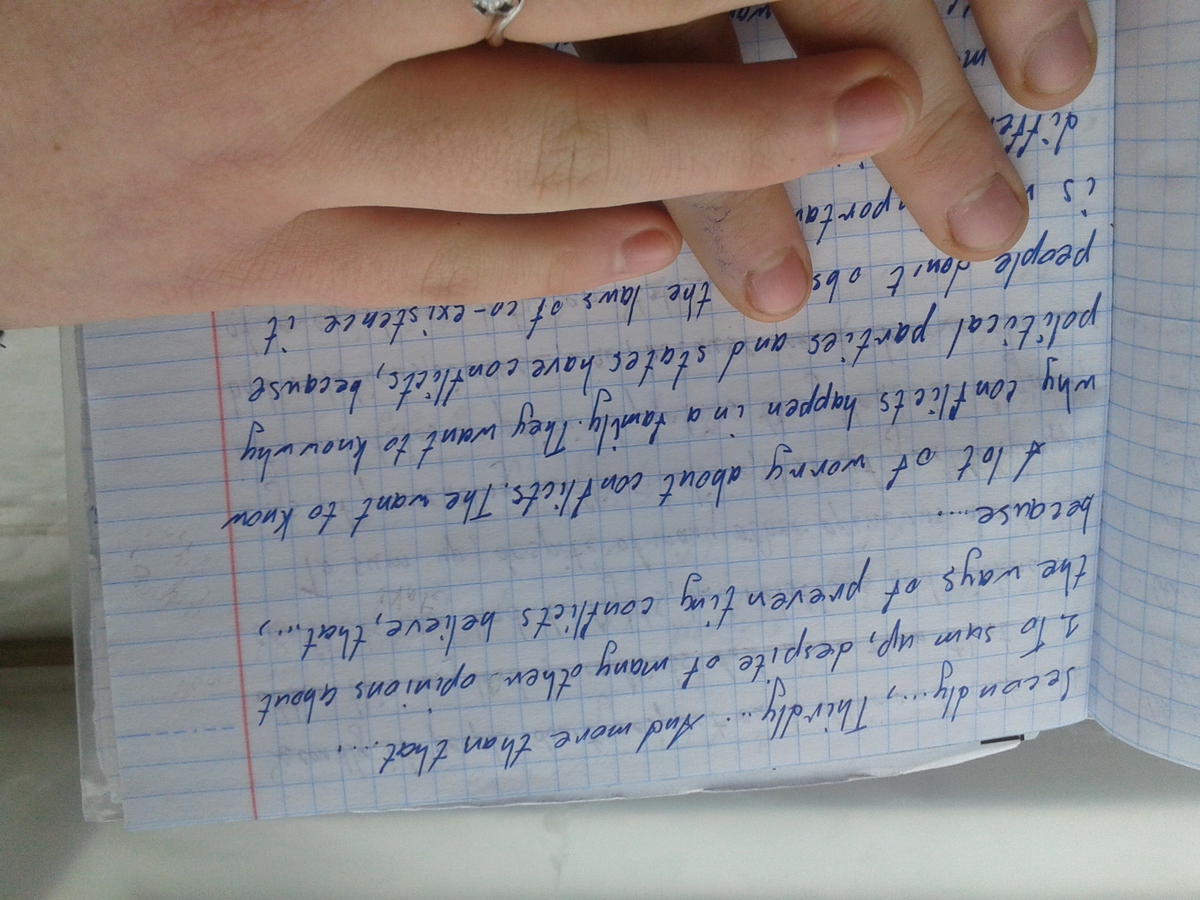 Secondly..., Thirdly... And more than that....,
1. To sum up, despite of many other opinions about
the ways of preventing conflicts believe, that...,
because....
A lot of worry about conflicts. The want to know
why conflicts happen in a family. They want to know why
political parties and states have conflicts, because
people don't obs the laws of co-existence it
is